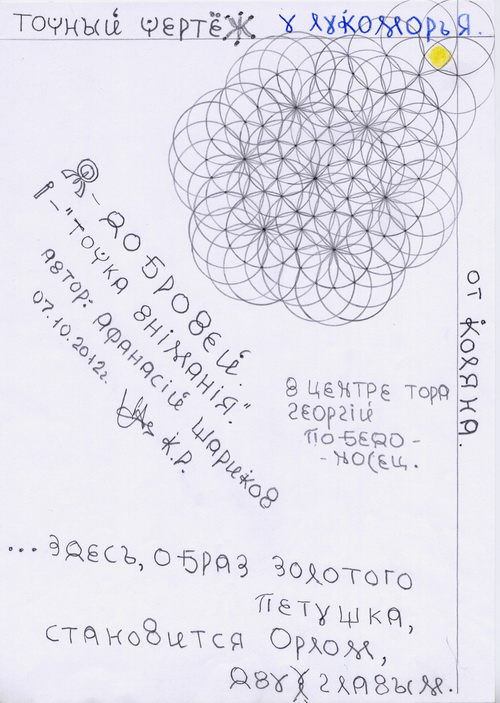 ТОЧНЫЙ ЧЕРТЁЖ У ЛУКОМОРЬЯ.
- ДОБРОДЕЙ.
- "ТОЧКА ВНІМАНІЯ."
АВТОР: АФАНАСІЙ ШАРИКОВ
07.10.2012г. К.Р.
ОТ КОЛЯНА.
В ЦЕНТРЕ ТОРА
ГЕОРГІЙ
ПОБЕДО-
-НОСЕЦ.
... ЗДЕСЬ, ОБРАЗ ЗОЛОТОГО
ПЕТУШКА,
СТАНОВИТСЯ ОРЛОМ,
ДВУХ ГЛАВЫМ.